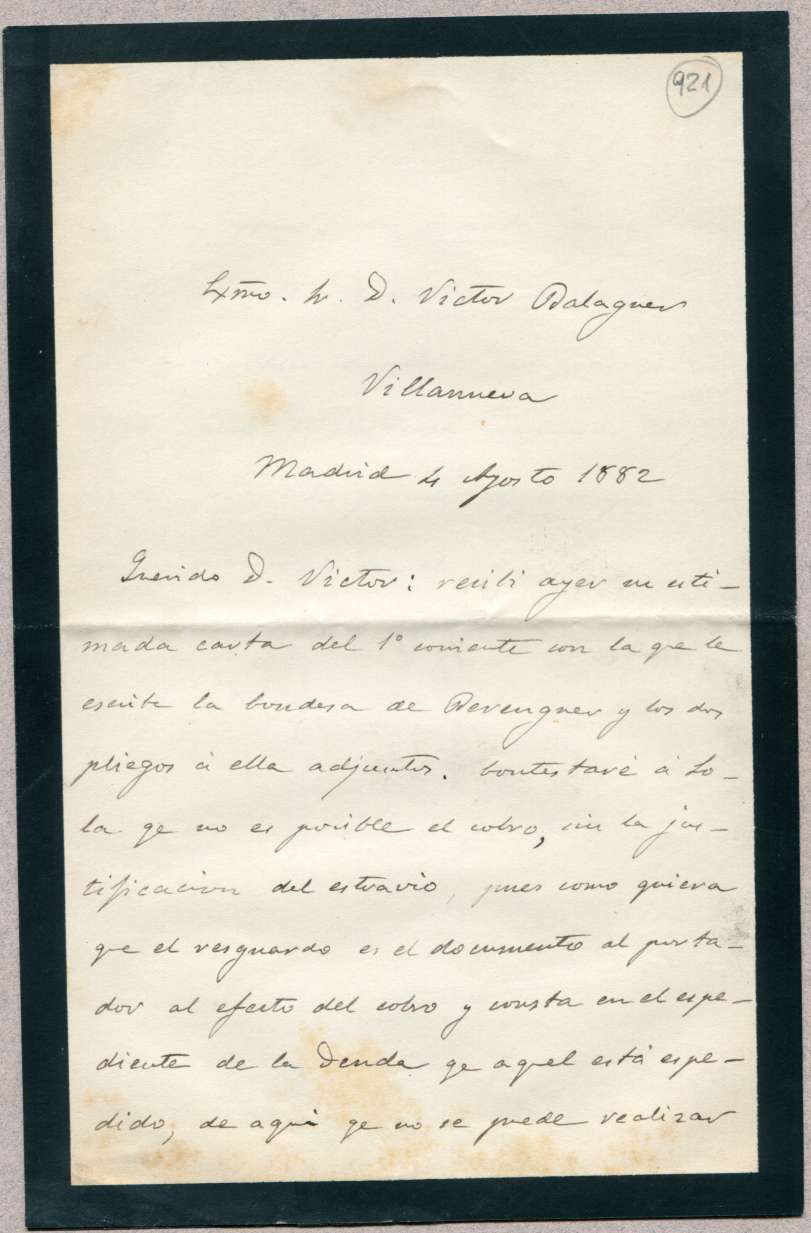 921
Exmo. Sr. D. Victor Balaguer
Villanueva
Madrid 4 Agosto 1882
Querido D. Victor: recibi ayer su esti-
mada carta del 1º corriente con la que le
escribe la Condesa de Berenguer y los dos
pliegos á ella adjuntos. Contestaré á So-
la qe no es posible el cobro, sin la jus-
tificacion del estravio, pues como quiera
que el resguardo es el documento al porta-
dor al efecto del cobro y consta en el espe-
diente de la Deuda qe aquel está espe-
dido, de aqui qe no se puede realizar